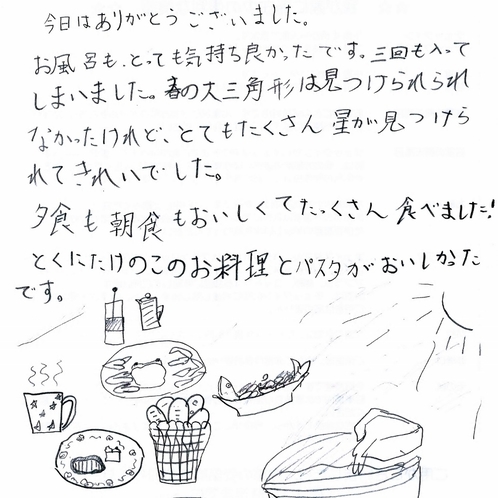 今日はありがとうございました。
お風呂も、とっても気持ち良かったです。三回も入って
しまいました。春の大三角形は見つけられられ
なかったけれど、とてもたくさん星が見つけら
れてきれいでした。
夕食も朝食もおいしくてたっくさん食べました!
とくにたけのこのお料理とパスタがおいしかった
です。